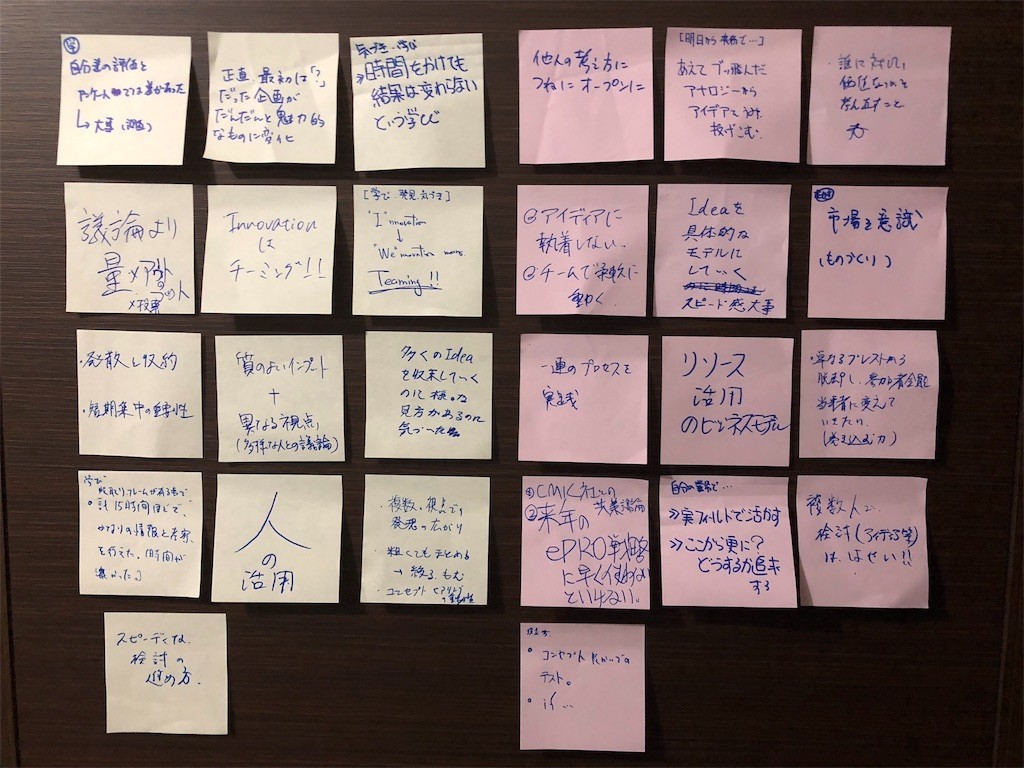 学
自分達の評価と
アンケート
↳ 大事
正直、最初は「?」
だった企画が
だんだんと魅力的
なものに変化
気づき・学び
≫時間をかけても
結果は変わらない
という学び
他人の考え方に
つねに オープンに
[明日から 業務で…]
あえて ブッ飛んだ
アナロジーから
アイデアをうみ
投げこむ.
・誰に対しての
価値なのか
議論より
量×アウトプット
×投票
Innovation
は
チーミング!!
[学び 発見 気づき]
"I"nnovation
↓
"We"novation
Teaming!!
アイディアに
執着しない.
チームで柔軟に
動く.
Ideaを
具体的な
モデルに
していく
スピード感大事
市場を意識
(ものづくり)
・発散し収約
・短期集中の重要性
質のよいインプット
+
異なる視点
(多様な人との議論)
多くのIdea
を収束していく
のに様々な
見方があるのに
気づいた
一連のプロセスを
実践
リソース
活用
のビジネスモデル
・単なるブレストから
脱却し、参加者全員
当事者に変えて
いきたい.
(巻き込む力)
学び
計15時間ほどで、
かなりの情報と考察
を行えた.
人
の
活用
複数、視点での
発想の広がり
・粗くてもまとめる
→ 絞る、もむ
・コンセプト
① CMIC社との
②来年の
ePRO戦略
に早く使わない
といけない。
自分の業務で…
≫実フィールドで活かす
≫ここから更に?
どうするか追求
する
複数人で、
検討(アイデア等)
スピーディな、
検討の
進め方.
コンセプト
テスト。
if…